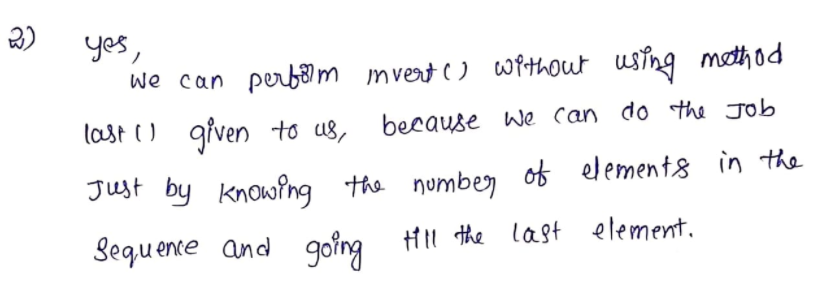 2) yes,
we can perform invert() without using method
last() given to us, because we can do the Job
Just by knowing the number of elements in the
Sequence and going till the last element.